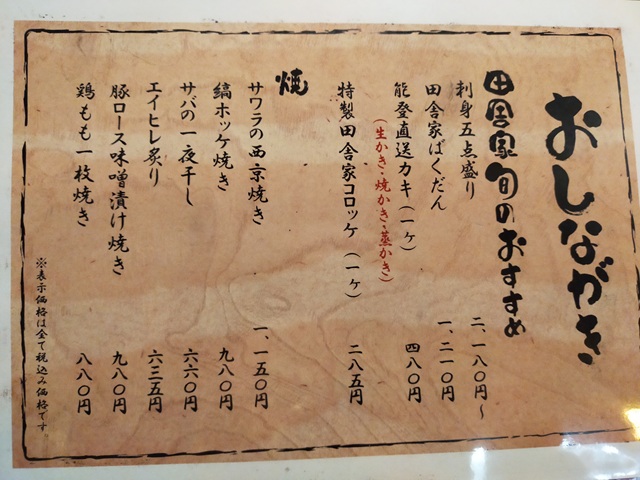 おしながき
田舎家旬のおすすめ
刺身五点盛り 二、一八〇円〜
田舎家ばくだん 一、二一〇円
能登直送カキ（一ケ） 四八〇円
（生かき・焼かき・蒸かき）
特製田舎家コロッケ（一ケ） 二八五円
焼
サワラの西京焼き 一、一五〇円
縞ホッケ焼き 九八〇円
サバの一夜干し 六六〇円
エイヒレ炙り 六三五円
豚ロース味噌漬け焼き 九八〇円
鶏もも一枚焼き 八八〇円
※表示価格は全て税込み価格です